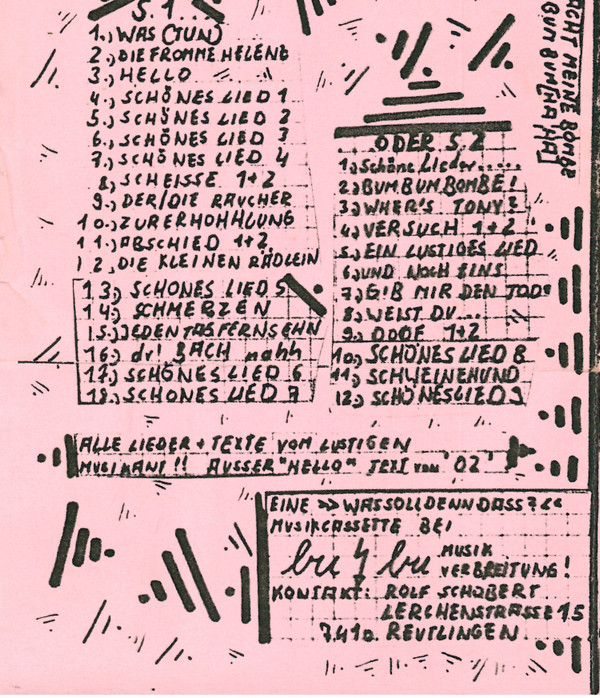 S.1...
1.) WAS (TUN)
2.) DIE FROMME HELENE
3.) HELLO
4.) SCHÖNES LIED 1
5.) SCHÖNES LIED 2
6.) SCHÖNES LIED 3
7.) SCHÖNES LIED 4
8.) SCHEISSE 1+2
9.) DER/DIE RAUCHER
10.) ZUR ERHOHHLUNG
11.) ABSCHIED 1+2
12.) DIE KLEINEN RÄDLEIN
13.) SCHÖNES LIED 5
14.) SCHMERZEN
15.) JEDEN TAG FERNSEHN
16.) dr! BACH nahh
17.) SCHÖNES LIED 6
18.) SCHÖNES LIED 7
... ODER S.2
1.) Schöne Lieder.....
2.) BUM BUM BOMBE!
3.) WHER'S TONY?
4.) VERSUCH 1+2
5.) EIN LUSTIGES LIED
6.) UND NOCH EINS
7.) GIB MIR DEN TOD
8.) WEIST DU...
9.) DOOF 1+2
10.) SCHÖNES LIED 8
11.) SCHWEINEHUND
12.) SCHÖNES LIED 9
MEINE BOMBE
BUM BUM (HA HA)
ALLE LIEDER + TEXTE VOM LUSTIGEN
MUSIKANT!! AUSSER "HELLO" TEXT von '02'
EINE >> WASSOLLDENNDASS?<<
MUSIKCASSETTE BEI
bu bu MUSIK
VERBREITUNG!
KONTAKT: ROLF SCHOBERT
LERCHENSTRASSE 15
7410 REUTLINGEN